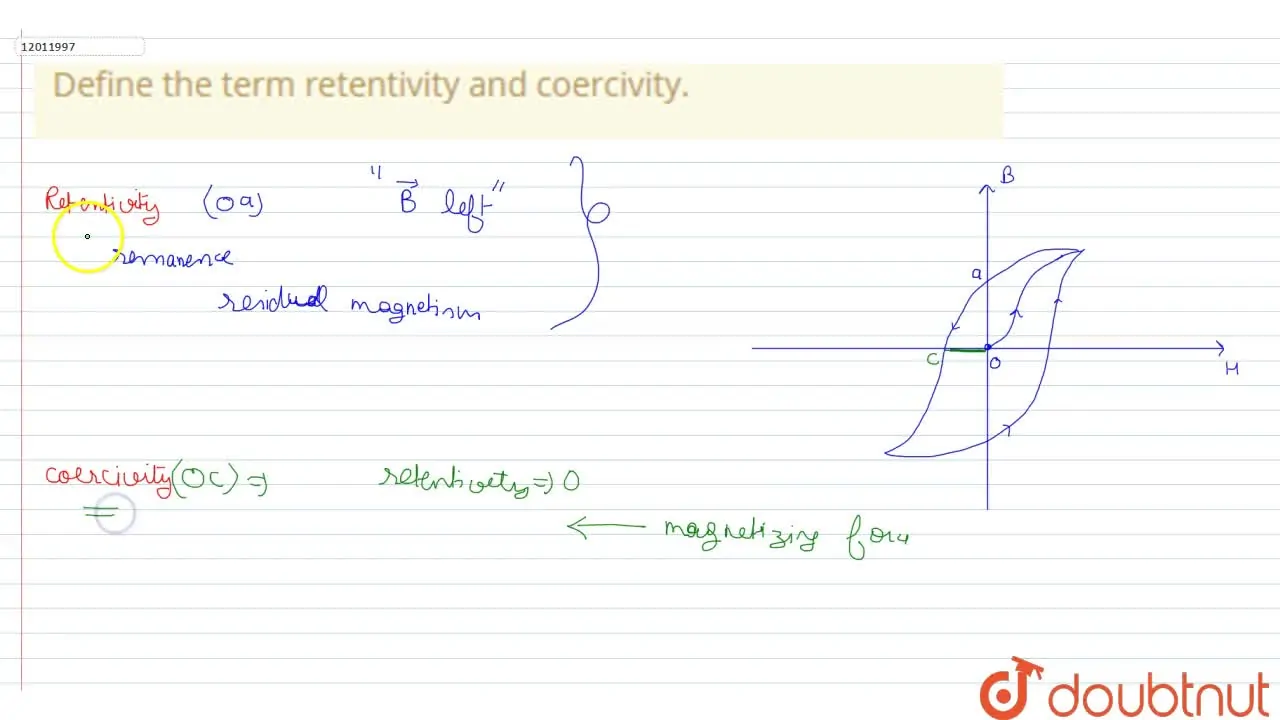 12011997
Define the term retentivity and coercivity.
Retentivity (Oa) "B left"
remanence
residual magnetism
coercivity (OC) ⇒ retentivety ⇒ 0
← magnetizing
B
a
C
O
H
doubtnut